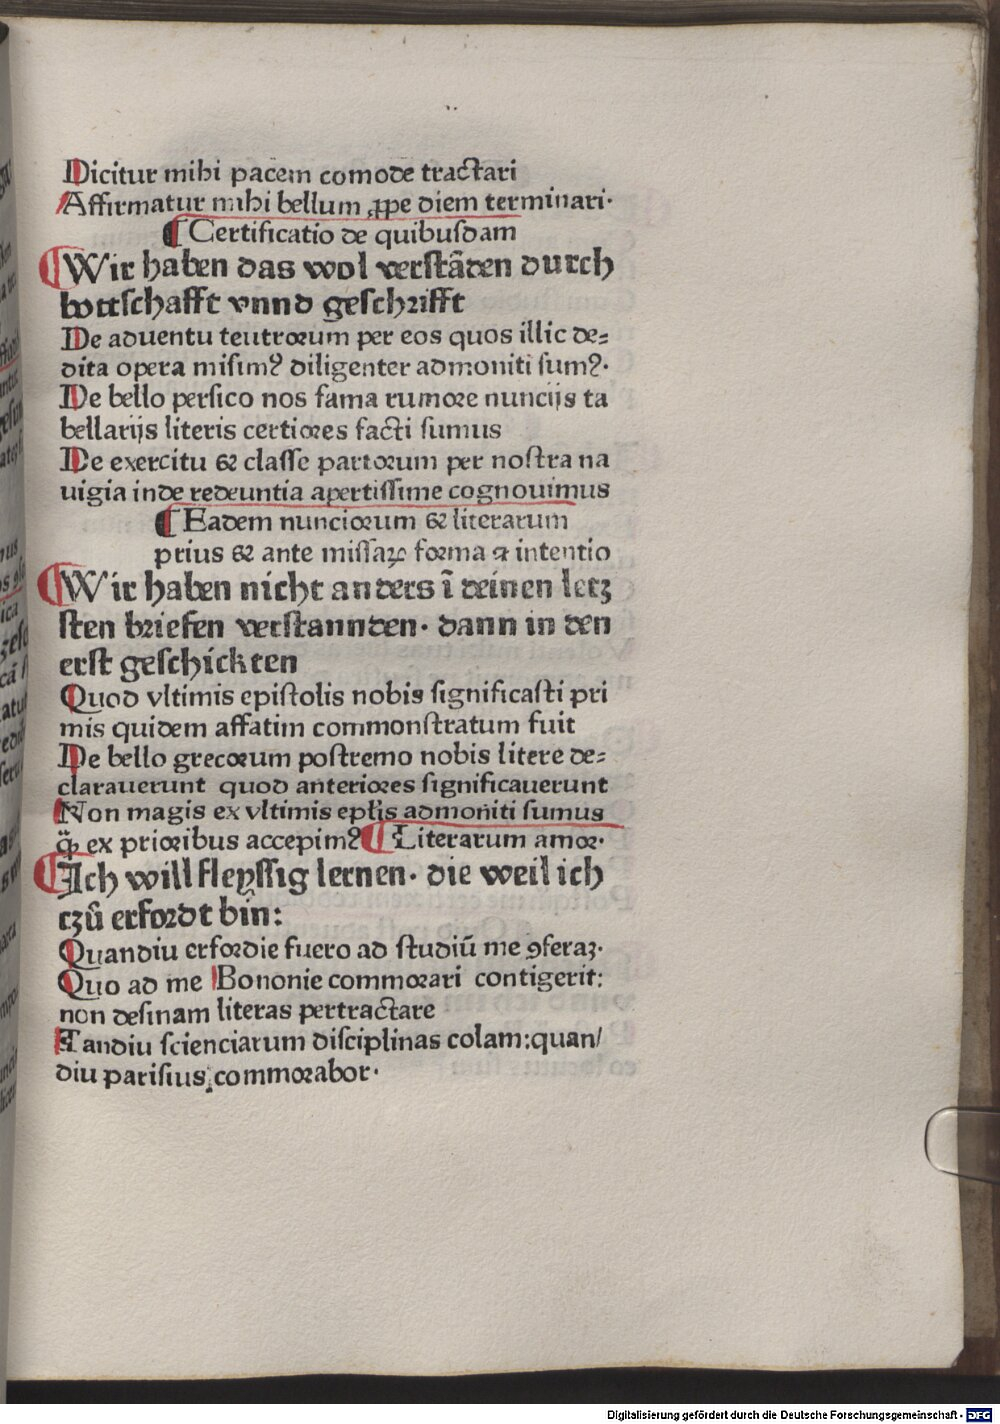 Dicitur mihi pacem comode tractari
Affirmatur mihi bellum ꝓpe diem terminari·
¶ Certificatio de quibusdam
¶ Wir haben das wol verstãden durch
bottschafft vnnd geschrifft
De aduentu teutrorum per eos quos illic de⸗
dita opera misimꝰ diligenter admoniti sumꝰ·
De bello persico nos fama rumore nuncijs ta
bellarijs literis certiores facti sumus
De exercitu & classe partorum per nostra na
uigia inde redeuntia apertissime cognouimus
¶ Eadem nunciorum & literarum
prius & ante missaꝝ forma ⁊ intentio
¶ Wir haben nicht anders ĩ deinen letz
sten briefen verstannden· dann in den
erst geschickten
Quod vltimis epistolis nobis significasti pri
mis quidem affatim commonstratum fuit
De bello grecorum postremo nobis litere de⸗
clarauerunt quod anteriores significauerunt
Non magis ex vltimis epl̄is admoniti sumus
q̃ꝫ ex prioribus accepimꝰ ¶ Literarum amor·
¶ Ich will fleyssig lernen· die weil ich
tzů erfordt bin:
Quandiu erfordie fuero ad studiũ me ꝯferaꝫ·
Quo ad me Bononie commorari contigerit:
non desinam literas pertractare
Tandiu scienciarum disciplinas colam:quan/
diu parisius commorabor·
Digitalisierung gefördert durch die Deutsche Forschungsgemeinschaft - DFG